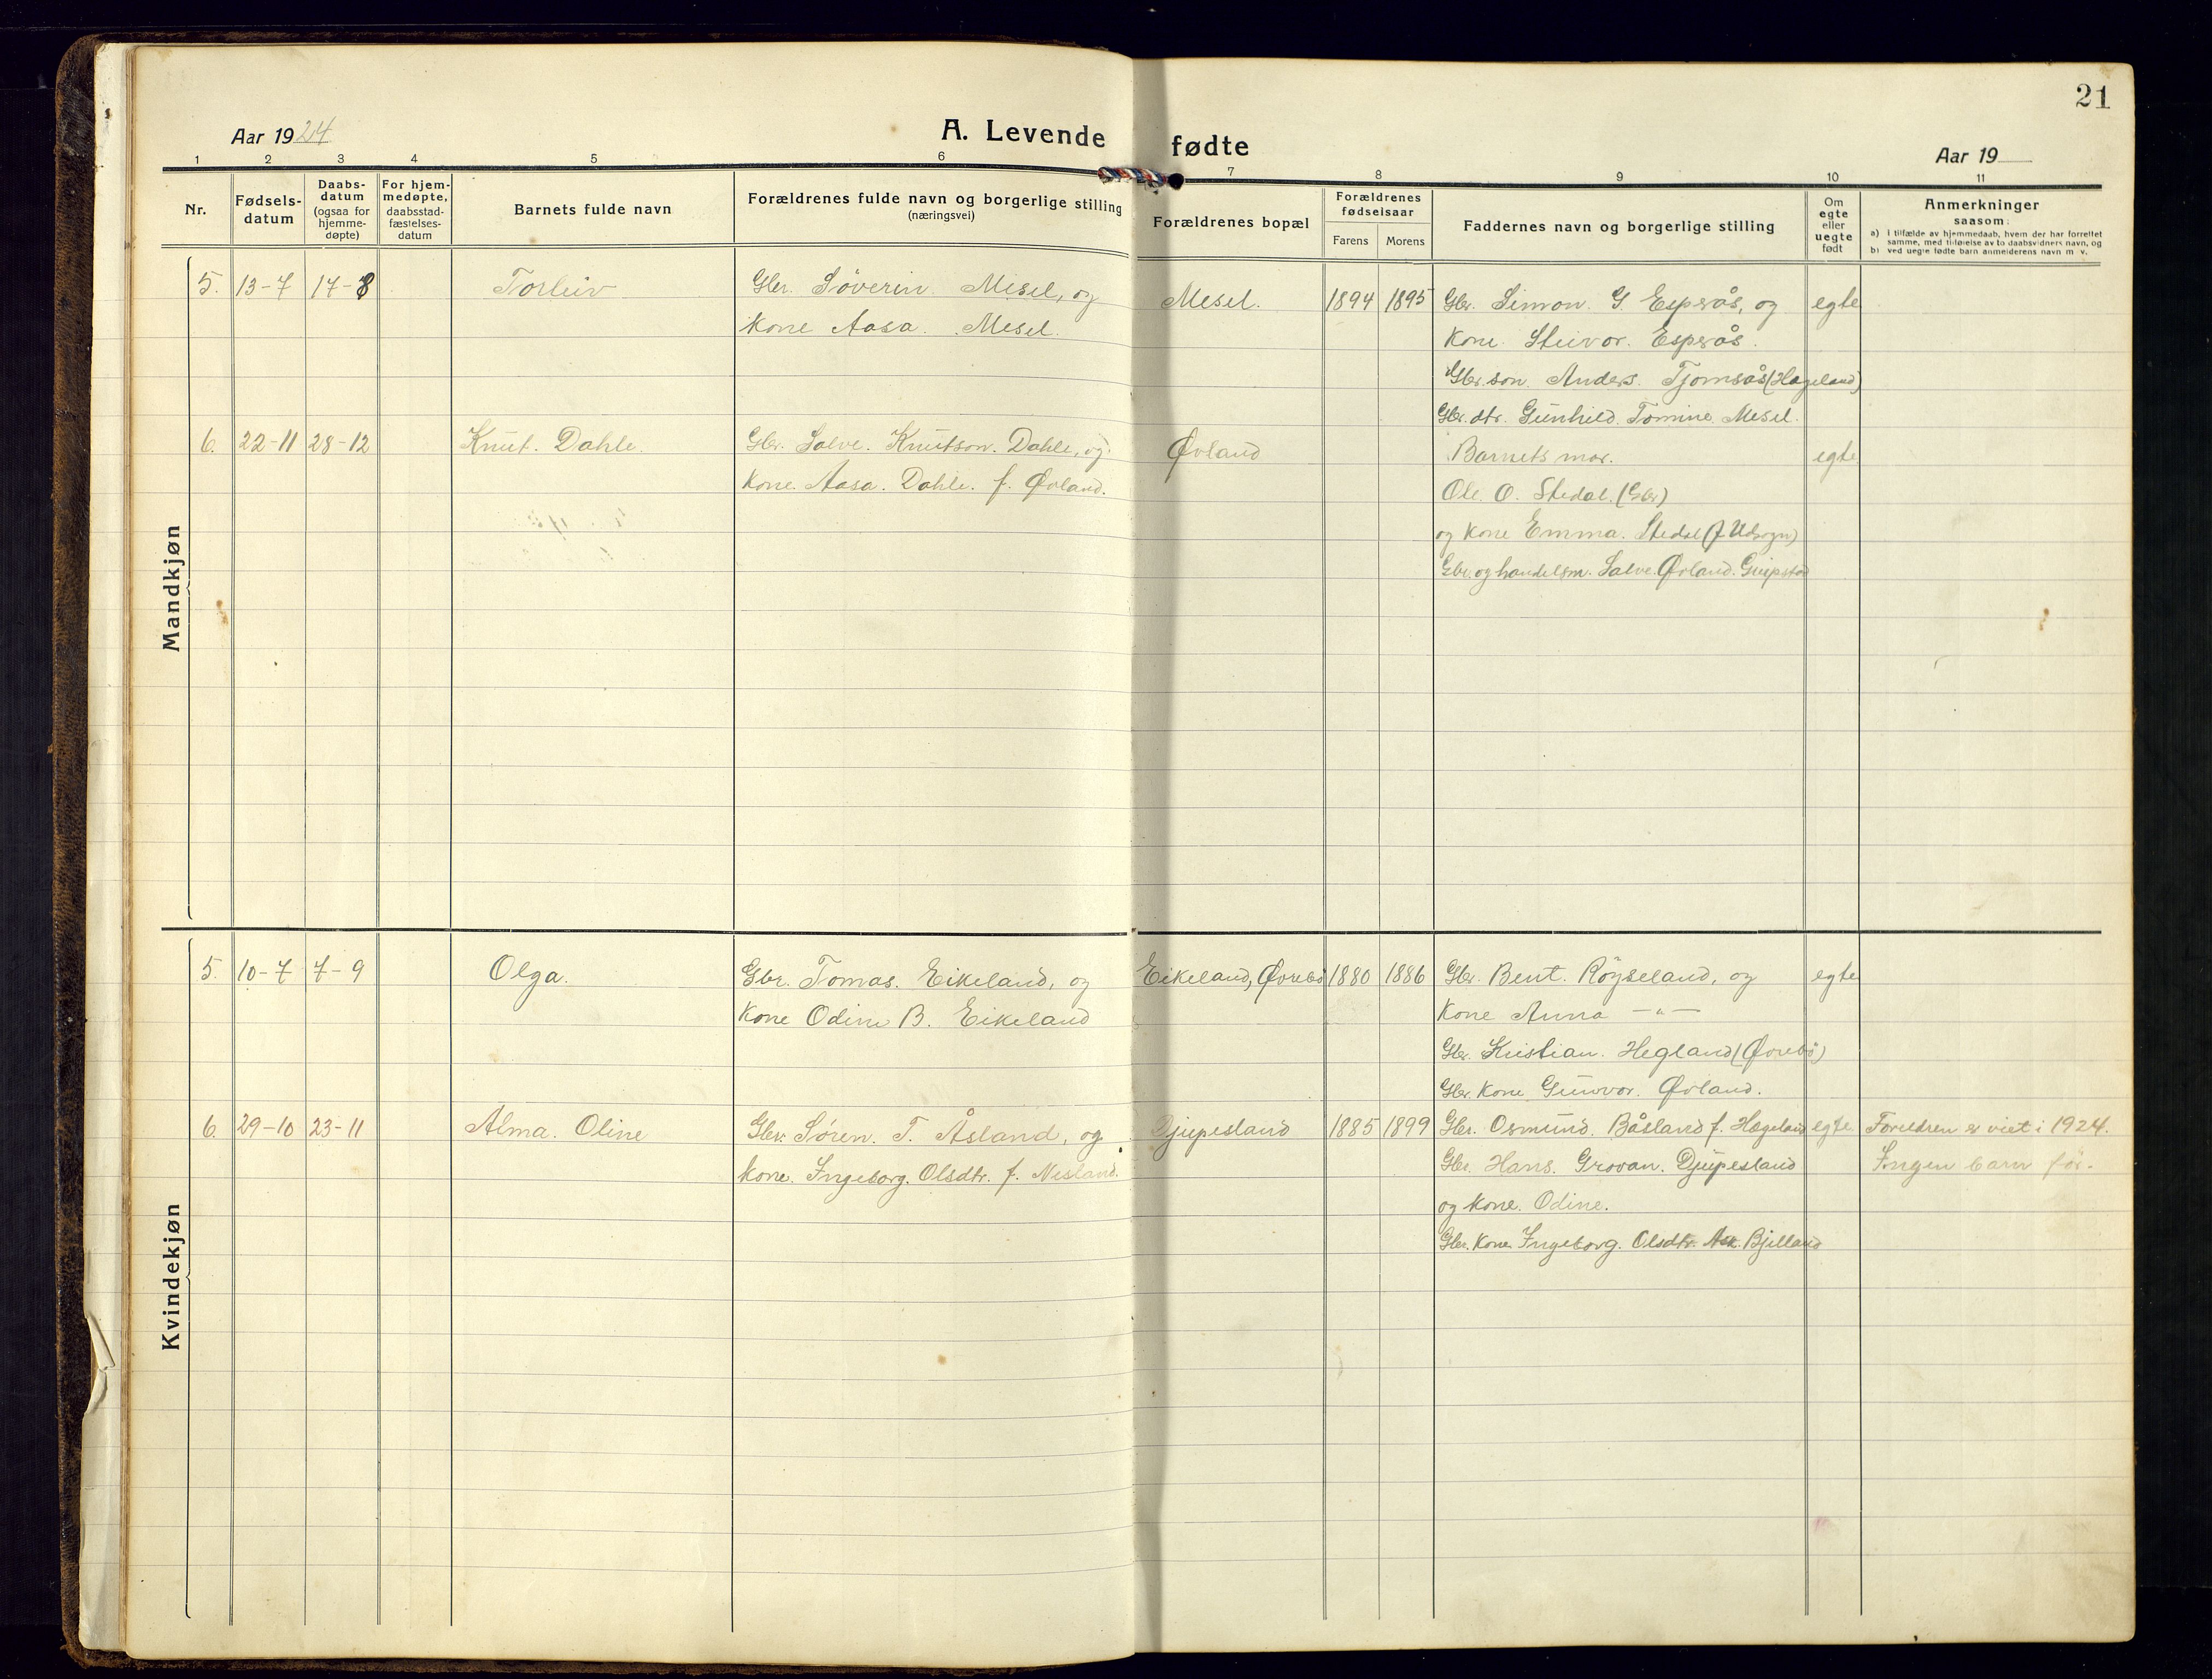 21
Aar 1924
A. Levende fødte
Aar 19
1 2 3 4 5 6 7 8 9 10 11
Nr.
Fødsels-
datum
Daabs-
datum
(ogsaa for
hjemme-
døpte)
For hjem-
medøpte,
daabsstad-
fæstelses-
datum
Barnets fulde navn
Forældrenes fulde navn og borgerlige stilling
(næringsvei)
Forældrenes bopæl
Forældrenes
fødselsaar
Farens Morens
Faddernes navn og borgerlige stilling
Om
egte
eller
uegte
født
Anmerkninger
saasom:
a) i tilfælde av hjemmedaab, hvem der har forrettet
samme, med tilføielse av to daabsvidners navn, og
b) ved uegte fødte barn anmelderens navn m. v.
Mandkjøn
5. 13-7 17-8 Torleiv Gbr. Søverin Mesel, og Mesel. 1894 1895 Gbr. Simon G. Esperås, og egte
kone Aasa. Mesel. Kone. Steivor. Esperås.
Gbr. son. Anders. Tjomsås (Hageland)
Gbr. dtr. Gunhild Tomine Mesel.
6. 22-11 28-12 Knut. Dahle. Gbr. Salve. Knutson. Dahle, og Øvland Barnets mor. egte
kone. Aasa. Dahle. f. Øvland. Ole. O. Stedal. (Gbr)
og kone Emma. Stedal
Gbr. og handelsm. Salve. Øvland.
Kvindekjøn
5. 10-7 7-9 Olga. Gbr. Tomas. Eikeland, og Eikeland, Øvrebø 1880 1886 Gbr. Bent. Røyseland, og egte
Kone Odine B. Eikeland Kone Anna -"-
Gbr. Kristian. Hegland (Øvrebø)
Gbr. kone Gunvor. Øvland.
6. 29-10 23-11 Alma. Oline Gbr. Søren. T. Åsland, og Djupesland 1885 1899 Gbr. Osmund. Båsland f. Hægeland egte Foreldren er viet i 1924.
kone. Ingeborg. Olsdtr. f. Nesland. Gbr. Hans. Grovan. Djupesland Ingen barn før.
og kone. Odine.
Gbr. Kone. Ingeborg. Olsdtr. Bjelland